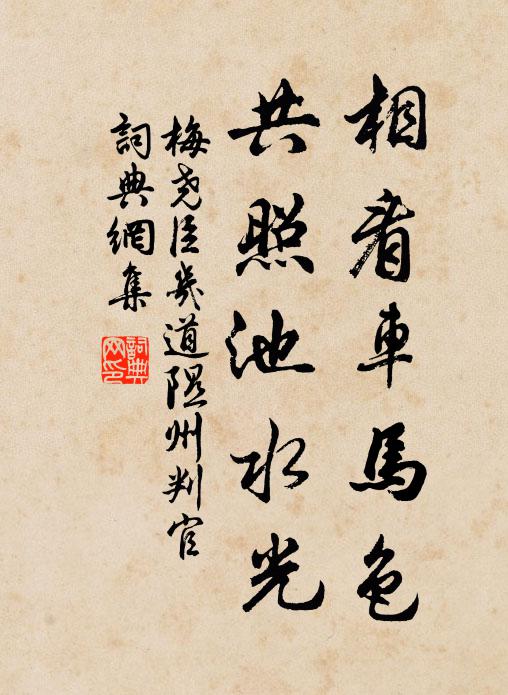 相看車馬色
共照池水光
梅尧臣炎道隰州判官
詞典網集
詞典网印